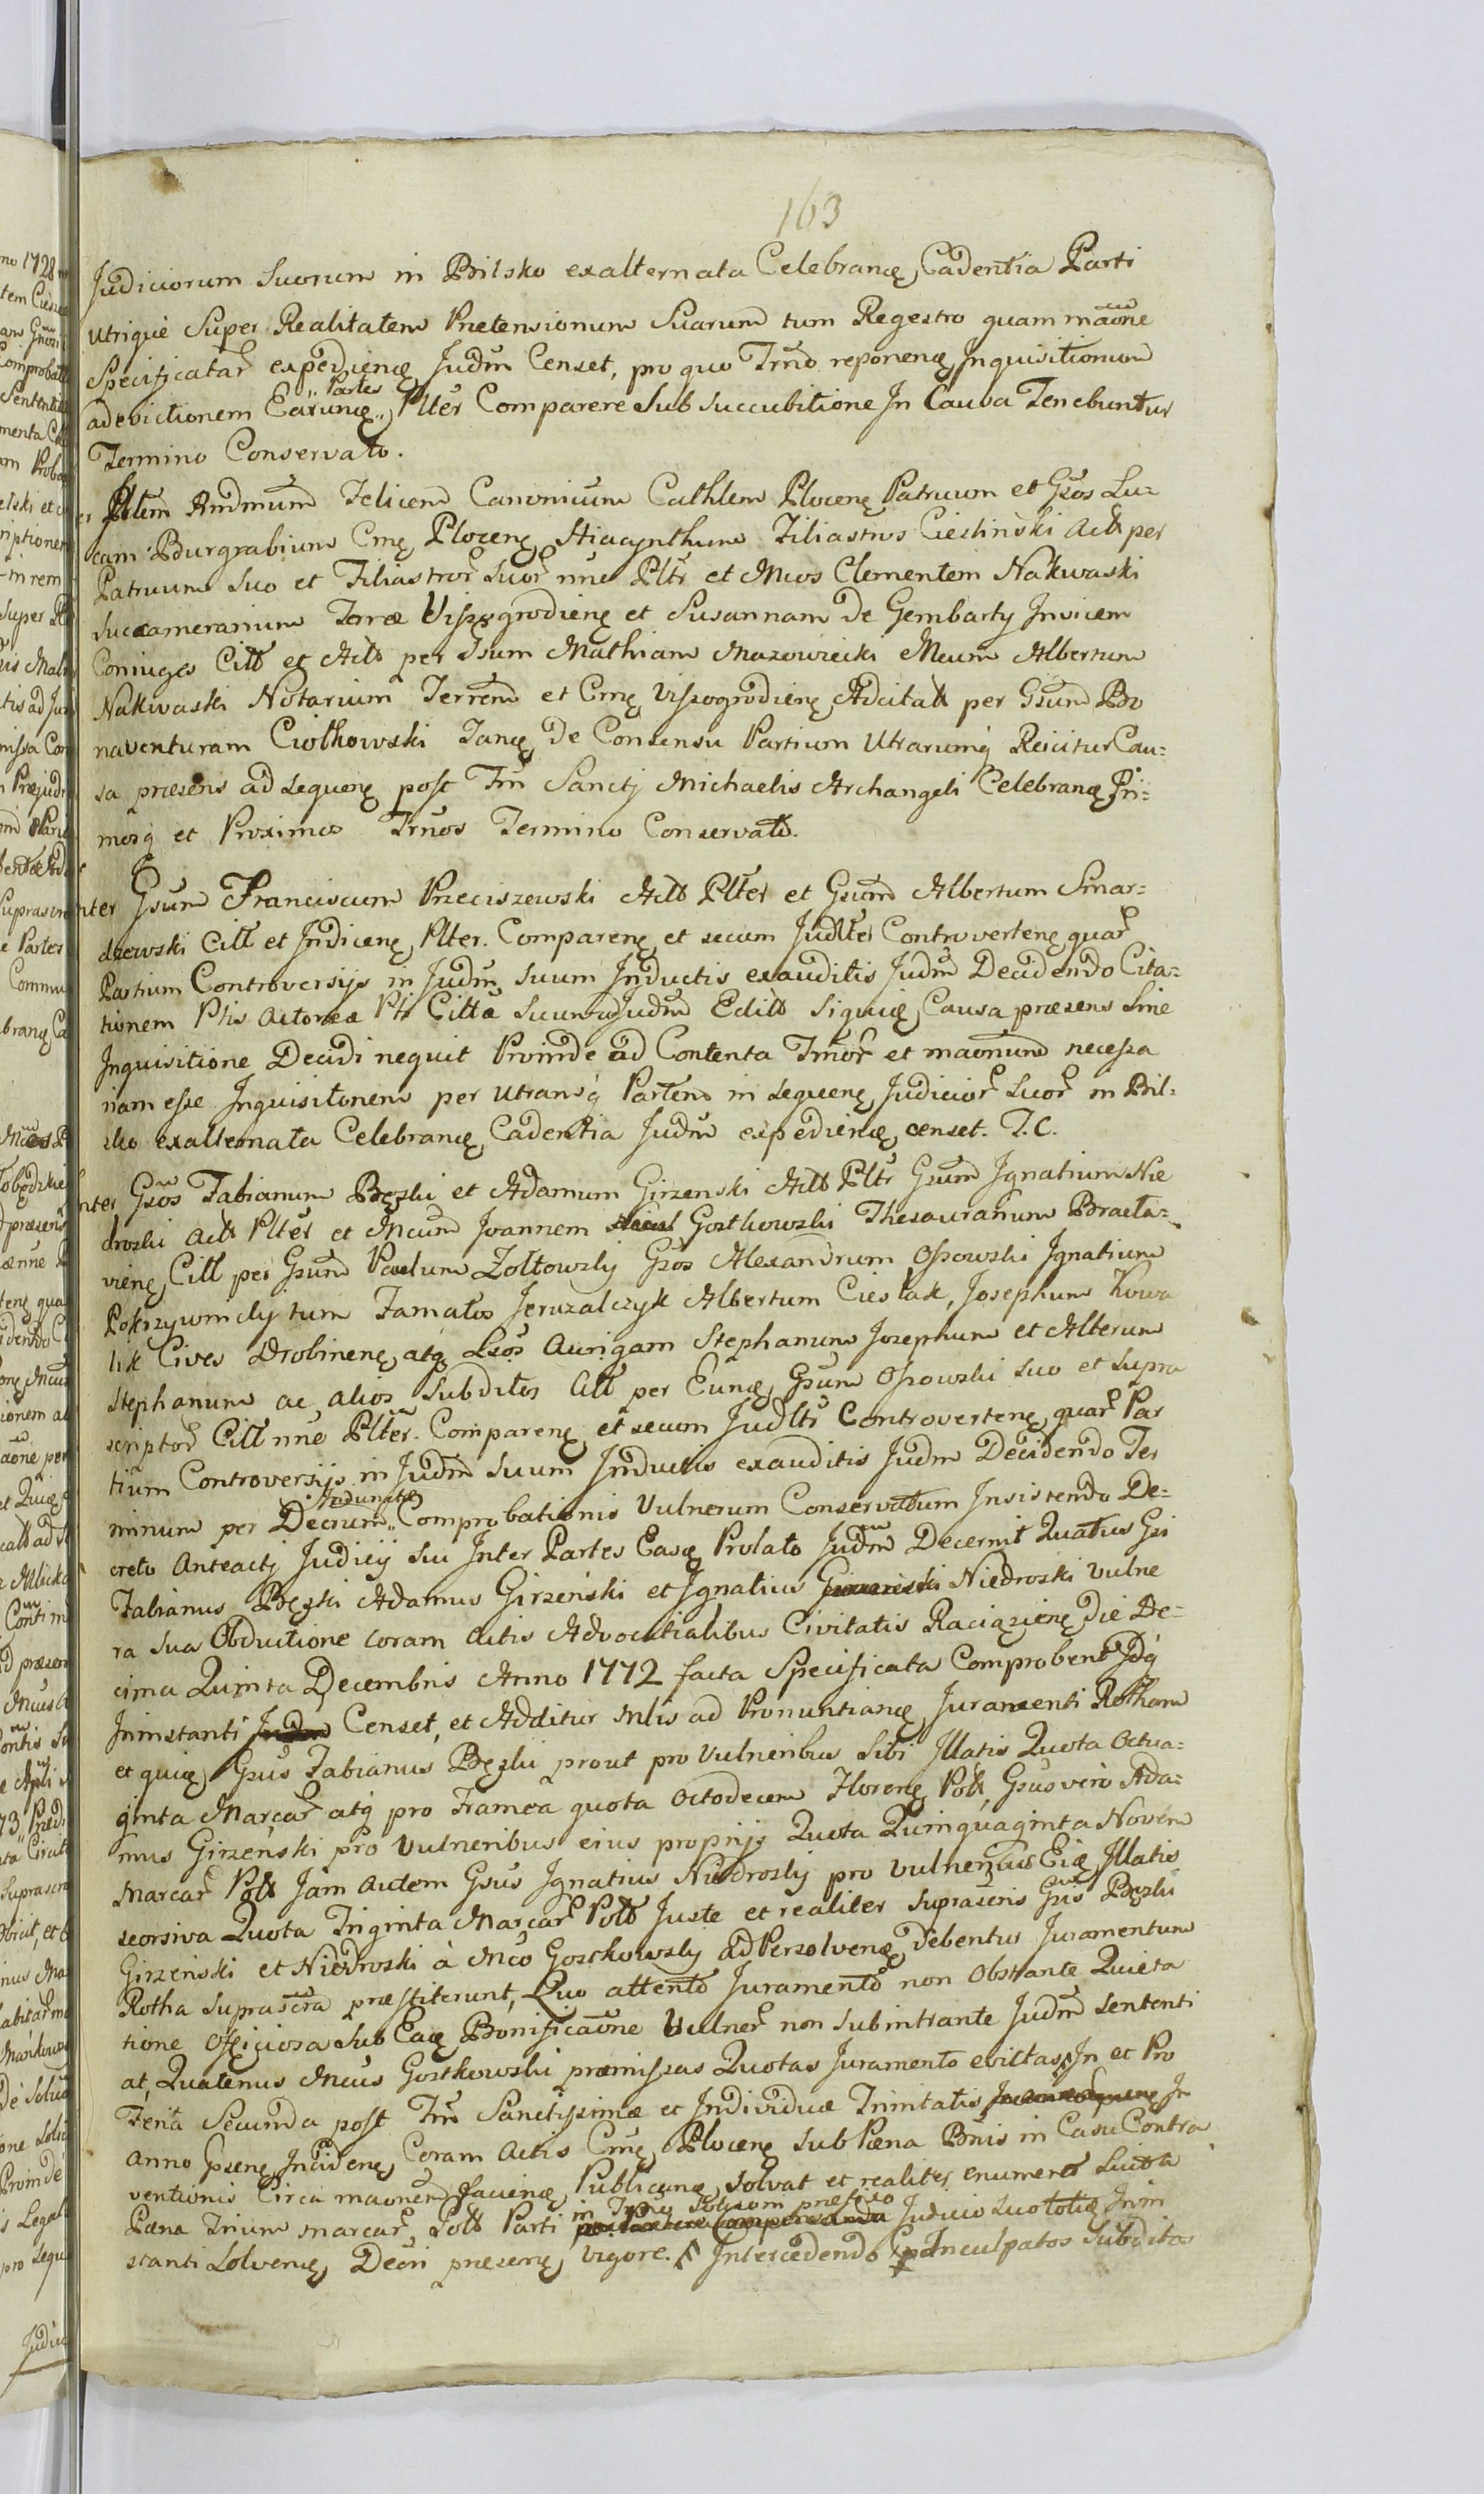 163
Judiciorum Suorum in Bilsko exalternata Celebranę Cadentia Parti
utrique Super Realitatem Prætensionum Suarum tum Regestro quam mãone
Specificatar expedienę Judm Censet, pro quo Trno reponenę Inquisitionum
ad evictionem Earunę „Partes„ Plter Comparere Sub Succubitione In Causa Tenebuntur
Termino Conservato.
Rndmum Felicem Canonicum Cathlem Plocenę Patruum et Gsos Lu-
cam Burgrabium Cmę Plocenę Hiacynthum Filiastros Cieslinski Actt per
Patruum Suo et Filiastror Suor nne Pltr et Mcos Clementem Nakwaski
Succamerarium Terræ Vissogrodienę et Susannam de Gembarty Invicem
Coniuges Citt et Actt per Gsum Mathiam Mazowiecki Mcum Albertum
Nakwaski Notarium Terrem et Cmę Vissogrodienę Adcitatt per Gsum Bo
naventuram Ciolkowski Tanę De Consensu Partium Utrarumq Reicitur Cau-
sa præsens ad sequenę post Fm Sancti Michaelis Archangeli Celebranę Pri-
mosq et Proximos Trnos Termino Conservato.
nter Gsum Franciscum Przeciszewski Actt Plter et Gsum Albertum Smar-
dzewski Citt et Indicenę Plter. Comparenę et secum Judlter Controvertenę quar
Partium Controversijs in Judm Suum Inductis exauditis Judm Decidendo Cita-
tionem Ptis Actoreæ Pti Cittæ Suum Judm Edito Siquię Causa præsens Sine
Inquisitione Decidi nequit Proinde ad Contenta Trnor et maonum necessa
riam esse Inquisitionem per utramq Partem in sequenę Judicior Suor in Bil-
sko exalternata Celebranę Cadentia Judm expedienę censet. T. C.
nter Gsos Fabianum Bęski et Adamum Girzenski Actt Pltr Gsum Ignatium Nie
drozki Actt Plter et Mcum Joannem Gostkowski Thesaurarium Bracla-
vienę Citt per Gsum Paulum Zołtowsky Gsos Alexandrum Ossowski Ignatium
Pokrzywnicky tum Famatos Jeruzalczyk Albertum Cieslak, Josephum Kowa
lik Cives Drobinenę atq Lsos Aurigam Stephanum Josephum et Alterum
Stephanum ac alios Subditos Citt per Eunę Gsum Ossowski suo et supra
scriptor Citt nne Plter. Comparenę et secum Judltr Controvertenę quar Par
tium Controversijs in Judm Suum Inductis exauditis Judm Decidendo Ter
minum per Decrum „Indunctæ„ Comprobationis Vulnerum Conservatum Insistendo De-
creto Anteacti Judicij Sui Inter Partes Easę Prolato Judm Decernit Quatus Gsi
Fabianus Bęski Adamus Girzeński et Ignatius Niedroski vulne
ra sua Obductione coram Actis Advocatialibus Civitatis Raciązienę die De-
cima Quinta Decembris Anno 1772 facta Specificata Comprobent Idq
Ininstanti Censet, et Additur Mlis ad Pronuntianę Juramenti Rotham
et quię Gsus Fabianus Bęski prout pro Vulneribus Sibi Illatis Quota Octua-
ginta Marcar atq pro Framea quota Octodecem Florenę Poll, Gsus vero Ada-
mus Girzenski pro Vulneribus eius proprijs Quota Quinquaginta Novem
Marcar Poll Jam Autem Gsus Ignatius Niedrosky pro Vulneribus Eię Illatis
seorsiva Quota Triginta Marcar Poll Juste et realiter suprascris Gsis Bęski
Girzenski et Niedroski à Mco Gostkowsky ad Persolvenę debentur Juramentum
Rotha suprascra præstiterunt, Quo attento Juramento non Obstante Quieta
tione Officiosa Sub Eaę Bonificaone Vulner non subintrante Judm Sententi
at, Quatenus Mcus Gostkowski præmissas Quotas Juramento evictas, In et Pro
Feria Secunda post Fm Sanctissimæ et Individuæ Trinitatis In
Anno Psenę Incidenę Coram Actis Cmę Plocenę sub Pœna Bnis in Casu Contra
ventionis Circa maonem facienę Publicanę Solvat et realiter enumeret Luita
Pæna Trium Marcar Poll Parti in Trno Solum præfixo Judicio suo totię Inin
stanti Solvenę Decri præsenę Vigore. Intercedendo Inculpatos Subditos